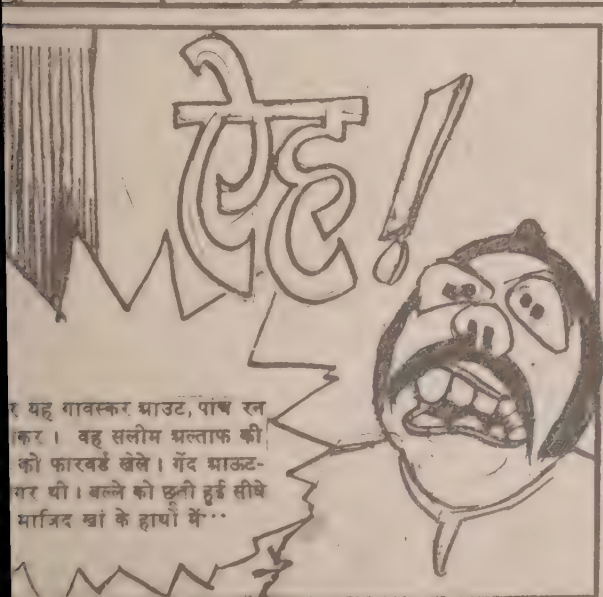 ऐह!
यह गावस्कर म्राउट, पांच रन
कर । वह सलीम म्रल्ताफ की
को फारवर्ड खेले । गेंद म्राऊट-
गर थी । बल्ले को छूती हुई सीधे
माजिद खां के हाथों में···